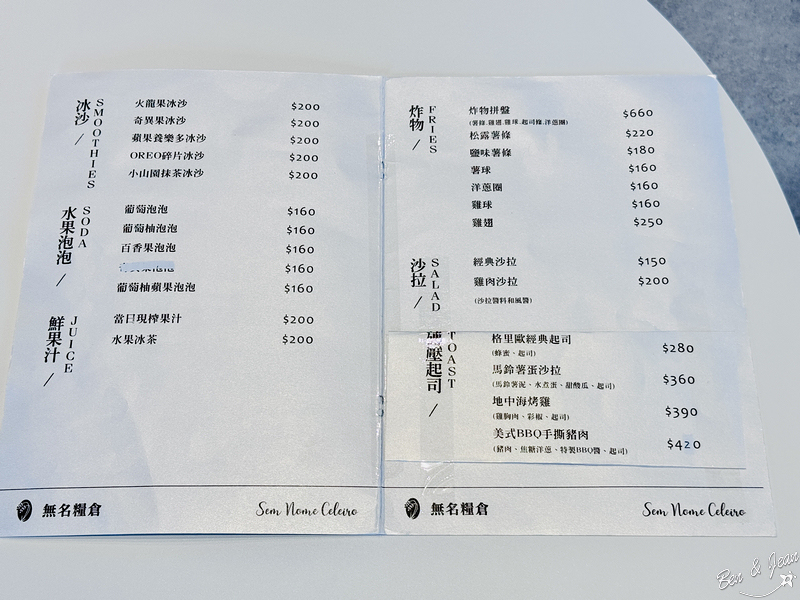 冰沙 /
SMOOTHIES
火龍果冰沙 $200
奇異果冰沙 $200
蘋果養樂多冰沙 $200
OREO碎片冰沙 $200
小山園抹茶冰沙 $200
水果泡泡 /
SODA
葡萄泡泡 $160
葡萄柚泡泡 $160
百香果泡泡 $160
$160
葡萄柚蘋果泡泡 $160
鮮果汁 /
JUICE
當日現榨果汁 $200
水果冰茶 $200
無名糧倉 Sem Nome Celeiro
炸物 /
FRIES
炸物拼盤 $660
(薯條.雞翅.雞球.起司條.洋蔥圈)
松露薯條 $220
鹽味薯條 $180
薯球 $160
洋蔥圈 $160
雞球 $160
雞翅 $250
沙拉 /
SALAD
經典沙拉 $150
雞肉沙拉 $200
(沙拉醬料和風醬)
壓起司 /
TOAST
格里歐經典起司 $280
(蜂蜜、起司)
馬鈴薯蛋沙拉 $360
(馬鈴薯泥、水煮蛋、甜酸瓜、起司)
地中海烤雞 $390
(雞胸肉、彩椒、起司)
美式BBQ手撕豬肉 $420
(豬肉、焦糖洋蔥、特製BBQ醬、起司)
無名糧倉 Sem Nome Celeiro
Ben & Jean